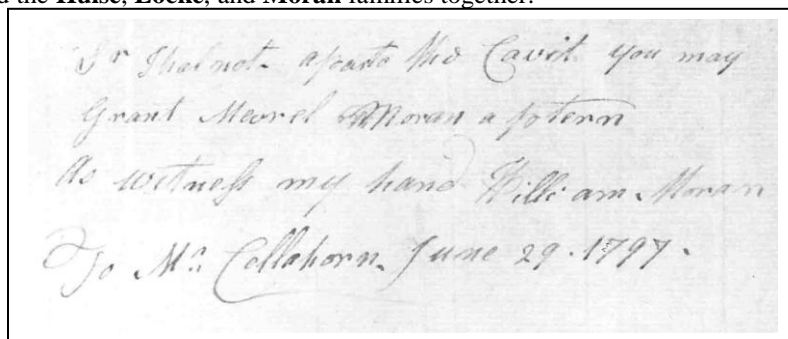 d the Hulse, Locke, and Moran families together.
Sr I hal not a parte the Cavit you may
Grant Meorel Moran a potern
As witness my hand William Moran
To Mr. Collahorn June 29 · 1797 ·